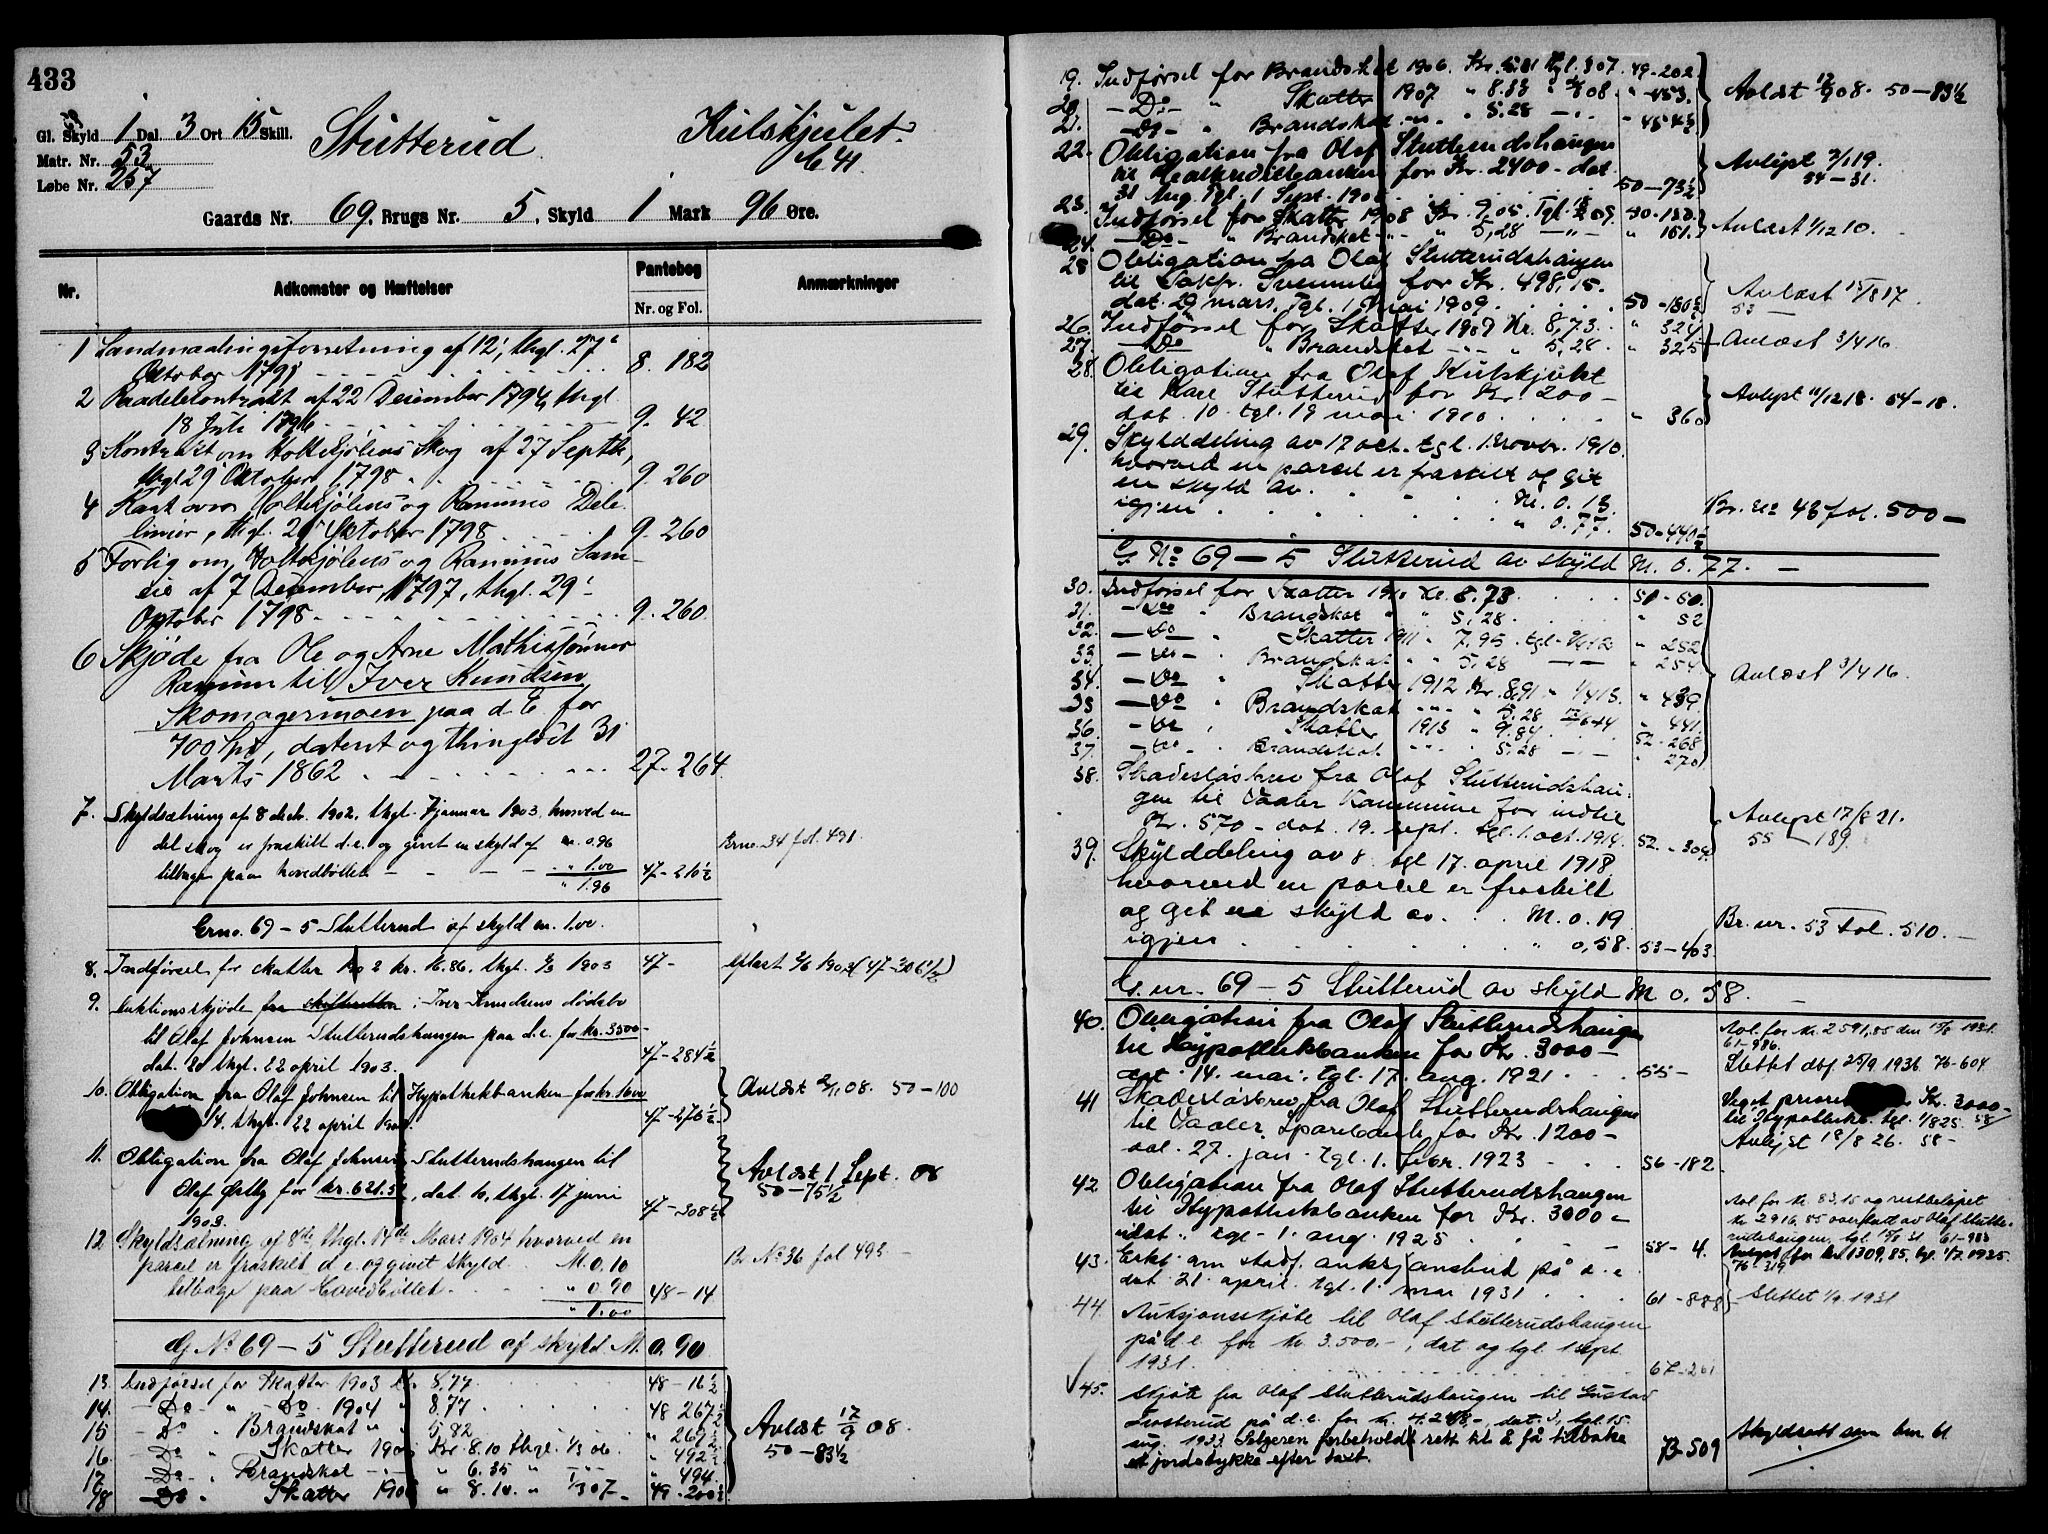 433
Gl. Skyld 1 Dal 3 Ort 15 Skill.
Matr. Nr. 53
Løbe Nr. 257
Stutterud
Kulskjulet
Gaards Nr. 69, Brugs Nr. 5, Skyld 1 Mark 96 Øre.
Nr. Adkomster og Hæftelser Pantebog Anmærkninger
Nr. og Fol.
1 Landmaalingsforretning af 12', thgl. 27'
Oktober 179 8. 182
2 Kontrakt af 22 Desember 1794, thgl.
18 Juli 1796 9. 42
3 Kontrakt om Holtesjølens Skog af 27 Septbr,
thgl 29 Oktober 1798 9 260
4 Kart over Holtesjølens og Ramuns Dele
linier, thgl. 29 Oktober 1798 9. 260
5 Forlig om Holtesjølens og Ramuns Sam-
eie af 7 Desember 1797, thgl. 29'
Oktober 1798 9. 260
6 Skjøde fra Ole og Arne Mathissønner
Ramun til Iver Knudsen
Skomagermoen paa d. E. for
700 Spd, dateret og thinglæst 31
Marts 1862 27-264
7. Skyldsætning af 8 decb. 1902. thgl. 7 januar 1903, hvorved en
del skog er fraskilt d.e. og givet en skyld af m. 0.96 Brno. 34 fol. 491.
tilbage paa hovedbøllet " 1.00 47-216½
" 1.96
Grno. 69-5 Stutterud af skyld m. 1.00.
8. Indførsel for skatter 1902 kr. 16.86. thgl. 1903 47- aflæst 1903 (47-306½)
9. Auktionsskjøde i Iver Knudsens dødsbo
til Olaf Johnsen Stutterudshaugen paa d.e. for kr. 3500-
dat. 20 thgl. 22 april 1903. 47-284½
10. Obligation fra Olaf Johnsen til Hypothekbanken for kr. 1600
14. thgl. 22 april 190 47-276½ Avlæst 08. 50-100
11. Obligation fra Olaf Johnsen Stutterudshaugen til
Olaf Østby for kr. 621.5 , dat. 10, thgl. 17 juni
1903. 47-308½ Avlæst 1 Sept. 08
50-75½
12 Skyldsætning af 8de thgl. 14de Mars 1904 hvorved en
parcel er fraskilt d.e. og givet skyld M. 0.10 Br No 36 fol 493
tilbage paa Hovedbøllet " 0.90 48-14
" 1.00
G No 69-5 Stutterud af skyld M. 0.90
13. Indførsel for Skatter 1903 Kr. 8,77. 48-16½
14. -Do- " -Do- 1904 " 8,77 48 267½
15 -Do " Brandskat " " 5,82 " 269½
16. -Do " Skatter 190 Kr. 8.10 thgl. 1/3 06. " 492½
17 -Do- " Brandskat " 6.35 " " 494.
18 -Do " Skatter 190 " 8.10. " 1/3 07- 49-200½
Avlæst 12/9 08.
50-83½
19. Indførsel for Brandskat 1906. Kr. 5.81 tgl. 307. 49-202
20. -Do- " Skatter 1907 " 8.83 " 08 " -453.
21. -Do- " Brandskat " 5.28 " 454½
Avlæst 12/9 08. 50-83½
22. Obligation fra Olaf Stutterudshaugen
til Realkreditbanken for Kr. 2400- dat.
31 Aug. tgl. 1 Sept. 190 50-73½
Avlyst 2/1 19.
54-31.
23. Indførsel for Skatter 1908 Kr. 9.05. Tgl. 09. 50-150.
24. -Do- " Brandskat " 5,28 " 151.
Avlæst 1/12 10.
25 Obligation fra Olaf Stutterudshaugen
til Sakfr. for Kr. 498.15.
dat. 29 mars, tgl. 1 mai 1909. 50-180½
Avlæst 15/8 17.
53-
26. Indførsel for Skatter 1909 Kr. 8,73. " 324
27. -Do " Brandskat " 5,28. " 325
Avlæst 3/4 16.
28. Obligation fra Olaf Kulskjulet
til Karl Stutterud for Kr. 200-
dat. 10. tgl. 19 mai 1910 " 360
Avlyst 11/12 18. 54-18.
29. Skylddeling av 17 oct. tgl. 1. novbr. 1910.
hvorved en parsel er fraskilt og git
en skyld av M. 0.13. Br. No 43 fol. 500-
igjen " 0.77. 50-440½
G No 69-5 Stutterud av skyld M. 0.77.-
30. Indførsel for Skatter 1910 Kr. 8.78 51-50.
31. -Do " Brandskat " 5,28. " 52
32. -Do- " Skatter 1911 " 7.95. tgl. 12 " 252
33. -Do- " Brandskat " 5.28 " 254
34. -Do " Skatter 1912 Kr. 8,91 " 1/4 13. " 439
35 -Do " Brandskat " 5.28 " 441.
36. -Do " Skatter 1913 " 9.84. 52-268
37. -Do- " Brandskat " 5.28 " 270
Avlæst 3/4 16.
38. Skadesløsbrev fra Olaf Stutterudshau-
gen til Vaaler Kommune for indtil
Kr. 570- dat. 19. sept. tgl. 1. oct. 1914. 52.-309.
Avlyst 17/8 21.
55-189.
39. Skylddeling av 8. tgl 17. april 1918
hvorved en parsel er fraskilt
og git en skyld av M. 0.19 Br. nr. 53 fol. 510.-
igjen " 0,58. 53-403
G. nr. 69-5 Stutterud av skyld M 0.58.-
40. Obligation fra Olaf Stutterudshaugen
til Hypothekbanken for Kr. 3000-
dat. 14. mai. tgl. 17. aug. 1921 55-
Avl. for kr. 2591,85 den 1931.
61-986.
Slettet dbf 25/9 1936 76-604
41 Skadesløsbrev fra Olaf Stutterudshaugen
til Vaaler Sparebank for Kr. 1200-
dat. 27. jan. tgl. 1. febr. 1923 56-182
Veget Kr. 3000-
til Hypothekb. tgl. 1/8 25. 58
Avlyst 18/8 26. 58-
42 Obligation fra Olaf Stutterudshaugen
til Hypothekbanken for Kr. 3000-
udat., tgl. 1. aug. 1925 58-4.
Avl. for kr. 83.15 og restbeløpet
kr. 2916.85 overført av Olaf Stutte-
rudshaugen, tgl. 31 61-983
Avlyst for kr. 1309,85, tgl. 1925.
76-319
43. Erkl. om stadf. auksjonsbud på d.e.
dat. 21. april tgl. 1. mai 1931 61-888
Slettet 1/9. 1931
44. Auksjonsskjøte til Olaf Stutterudshaugen
på d.e. for kr. 3.500.-, dat. og tgl. 1 sept
1931. 67-261
√45. Skjøte fra Olaf Stutterudshaugen til Gustav
på d.e. for kr. 4.248-, dat. 3, tgl. 15.
aug. 1933. Selgeren forbeholdt rett til å få tilbake
et jordstykke efter takst. 73-509
Skyldsatt som bnr 61